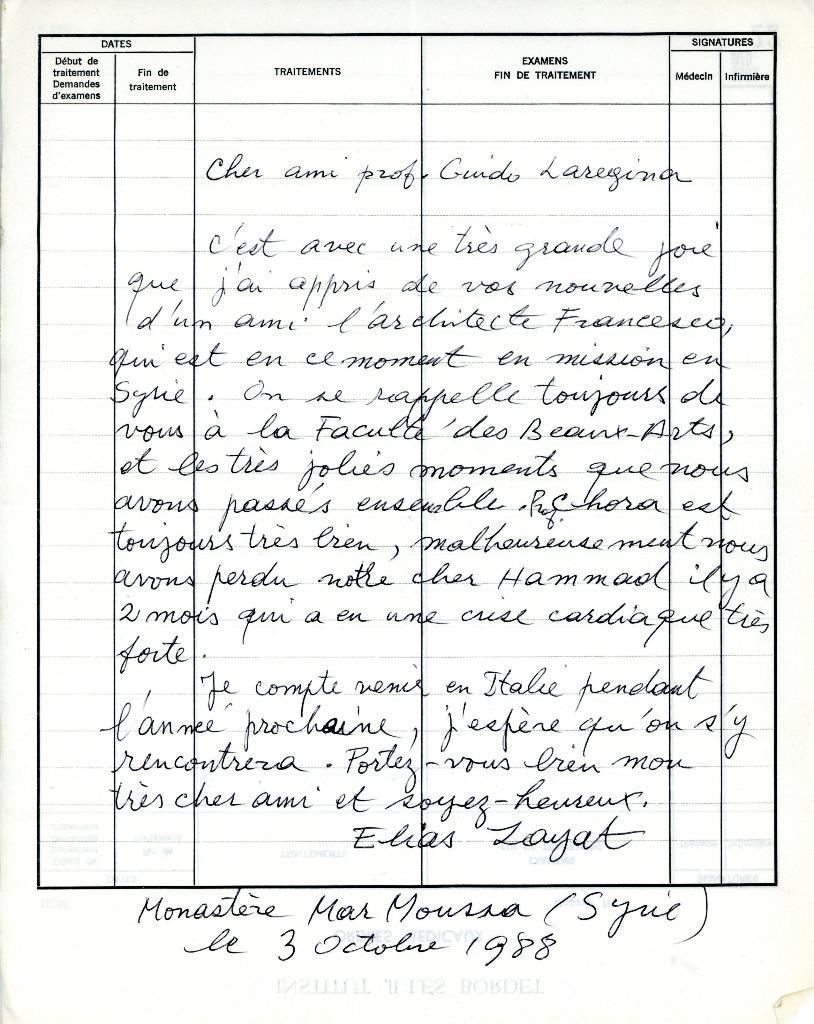 DATES
SIGNATURES
Début de
traitement
Demandes
d'examens
Fin de
traitement
TRAITEMENTS
EXAMENS
FIN DE TRAITEMENT
Médecin
Infirmière
Cher ami prof. Guido Laregina
C'est avec une très grande joie
que j'ai appris de vos nouvelles
d'un ami l'architecte Francesco,
qui est en ce moment en mission en
Syrie. On se rappelle toujours de
vous à la Faculté des Beaux-Arts,
et les très jolies moments que nous
avons passés ensemble. Prof Chora est
toujours très bien, malheureusement nous
avons perdu notre cher Hammad il y a
2 mois qui a eu une crise cardiaque très
forte.
Je compte venir en Italie pendant
l'année prochaine, j'espère qu'on s'y
rencontrera. Portez-vous bien mon
très cher ami et soyez-heureux.
Elias Zayat
Monastère Mar Moussa (Syrie)
le 3 Octobre 1988
ORDRES MÉDICAUX
INSTITUT JULES BORDET